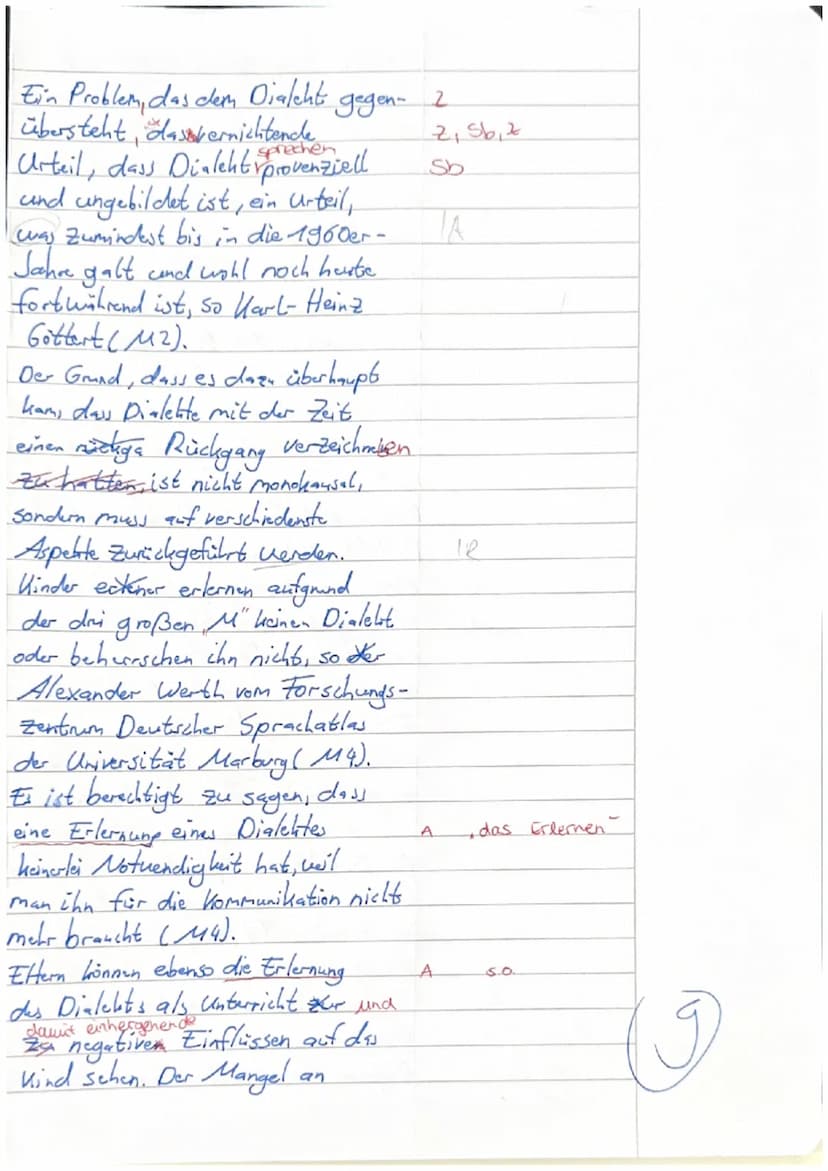 Ein Problem, das dem Dialekt gegen- z
übersteht, ist das vernichtende z, Sb, z
sprechen
Urteil, dass Dialekt provenziell Sb
und ungebildet ist, ein Urteil,
was zumindest bis in die 1960er- A
Jahre galt und wohl noch heute
fortwährend ist, so Karl-Heinz
Göttert (M2).
Der Grund, dass es dazu überhaupt
kam, dass Dialekte mit der Zeit
einen rückga Rückgang verzeichneten
zu hatten, ist nicht monokausal,
sondern muss auf verschiedenste
Aspekte zurückgeführt werden. R
Kinder erlernen aufgrund
der drei großen „M" keinen Dialekt
oder beherrschen ihn nicht, so der
Alexander Werth vom Forschungs-
zentrum Deutscher Sprachatlas
der Universität Marburg (M4).
Es ist berechtigt zu sagen, dass
eine Erlernung eines Dialektes A „das Erlernen"
keinerlei Notwendigkeit hat, weil
man ihn für die Kommunikation nicht
mehr braucht (M4).
Eltern können ebenso die Erlernung A s.o.
des Dialekts als Unterricht zur und
damit einhergehende
zu negativen Einflüssen auf das
Kind sehen. Der Mangel an
9